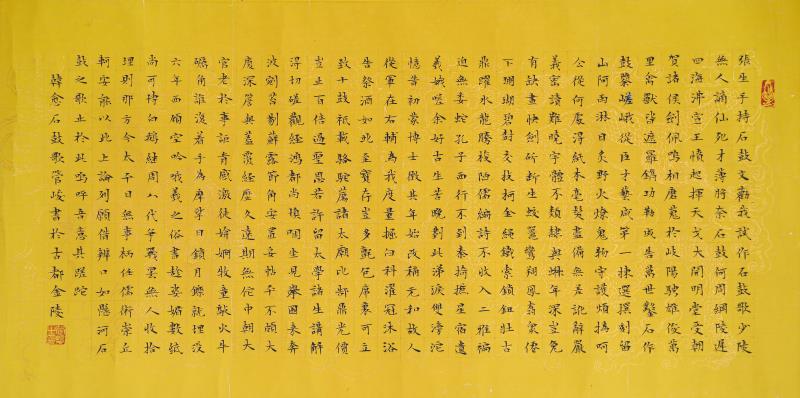 張生手持石鼓文勸我試作石鼓歌少陵
無人謫仙死才薄將奈石鼓何周綱陵遲
四海沸宣王憤起揮天戈大開明堂受朝
賀諸侯劍佩鳴相磨蒐於岐陽騁雄俊萬
里禽獸皆遮羅鐫功勒成告萬世鑿石作
鼓隳嵯峨從臣才藝咸第一揀選撰刻留
山阿雨淋日炙野火燎鬼物守護煩撝呵
公從何處得紙本毫髮盡備無差訛辭嚴
義密讀難曉字體不類隸與蝌年深豈免
有缺畫快劍斫斷生蛟鼉鸞翔鳳翥眾仙
下珊瑚碧樹交枝柯金繩鐵索鎖鈕壯古
鼎躍水龍騰梭陋儒編詩不收入二雅褊
迫無委蛇孔子西行不到秦掎摭星宿遺
羲娥嗟余好古生苦晚對此涕淚雙滂沱
憶昔初蒙博士徵其年始改稱元和故人
從軍在右輔為我度量掘臼科濯冠沐浴
告祭酒如此至寶存豈多氈包席裹可立
致十鼓祇載駱駝薦諸太廟比郜鼎光價
豈止百倍過聖恩若許留太學諸生講解
得切磋觀經鴻都尚填咽坐見舉國來奔
波剜苔剔蘚露節角安置妥帖平不頗大
廈深簷與蓋覆經歷久遠期無佗中朝大
官老於事詎肯感激徒媕婀牧童敲火牛
礪角誰復著手為摩挲日銷月鑠就埋沒
六年西顧空吟哦羲之俗書趁姿媚數紙
尚可博白鵝繼周八代爭戰罷無人收拾
理則那方今太平日無事柄任儒術崇丘
軻安能以此上論列願借辨口如懸河石
鼓之歌止於此嗚呼吾意其蹉跎
韓愈石鼓歌管峻書於古都金陵